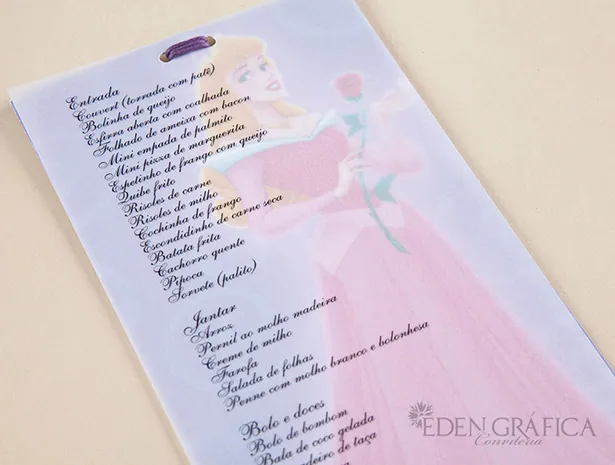 Entrada
Couvert (torrada com patê)
Bolinha de queijo
Esfirra aberta com coalhada
Folhado de ameixa com bacon
Mini empada de palmito
Mini pizza de marguerita
Espetinho de frango com queijo
Quibe frito
Risoles de carne
Risoles de milho
Cochinha de frango
Escondidinho de carne seca
Batata frita
Cachorro quente
Pipoca
Sorvete (palito)
Jantar
Arroz
Pernil ao molho madeira
Creme de milho
Farofa
Salada de folhas
Penne com molho branco e bolonhesa
Bolo e doces
Bolo de bombom
Bala de coco gelada
de taça
EDEN GRÁFICA
Conviteria